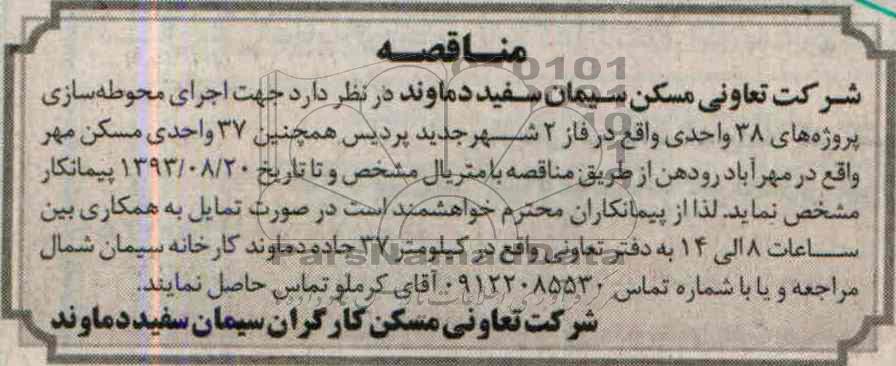 مناقصه
شرکت تعاونی مسکن سیمان سفید دماوند در نظر دارد جهت اجرای محوطه‌سازی
پروژه‌های ۳۸ واحدی واقع در فاز ۲ شهر جدید پردیس همچنین ۳۷ واحدی مسکن مهر
واقع در مهرآباد رودهن از طریق مناقصه با متریال مشخص و تا تاریخ ۱۳۹۳/۰۸/۲۰ پیمانکار
مشخص نماید. لذا از پیمانکاران محترم خواهشمند است در صورت تمایل به همکاری بین
ساعات ۸ الی ۱۴ به دفتر تعاونی واقع در کیلومتر ۳۷ جاده دماوند کارخانه سیمان شمال
مراجعه و یا با شماره تماس ۰۹۱۲۲۰۸۵۵۳۰ آقای کرملو تماس حاصل نمایند.
شرکت تعاونی مسکن کارگران سیمان سفید دماوند